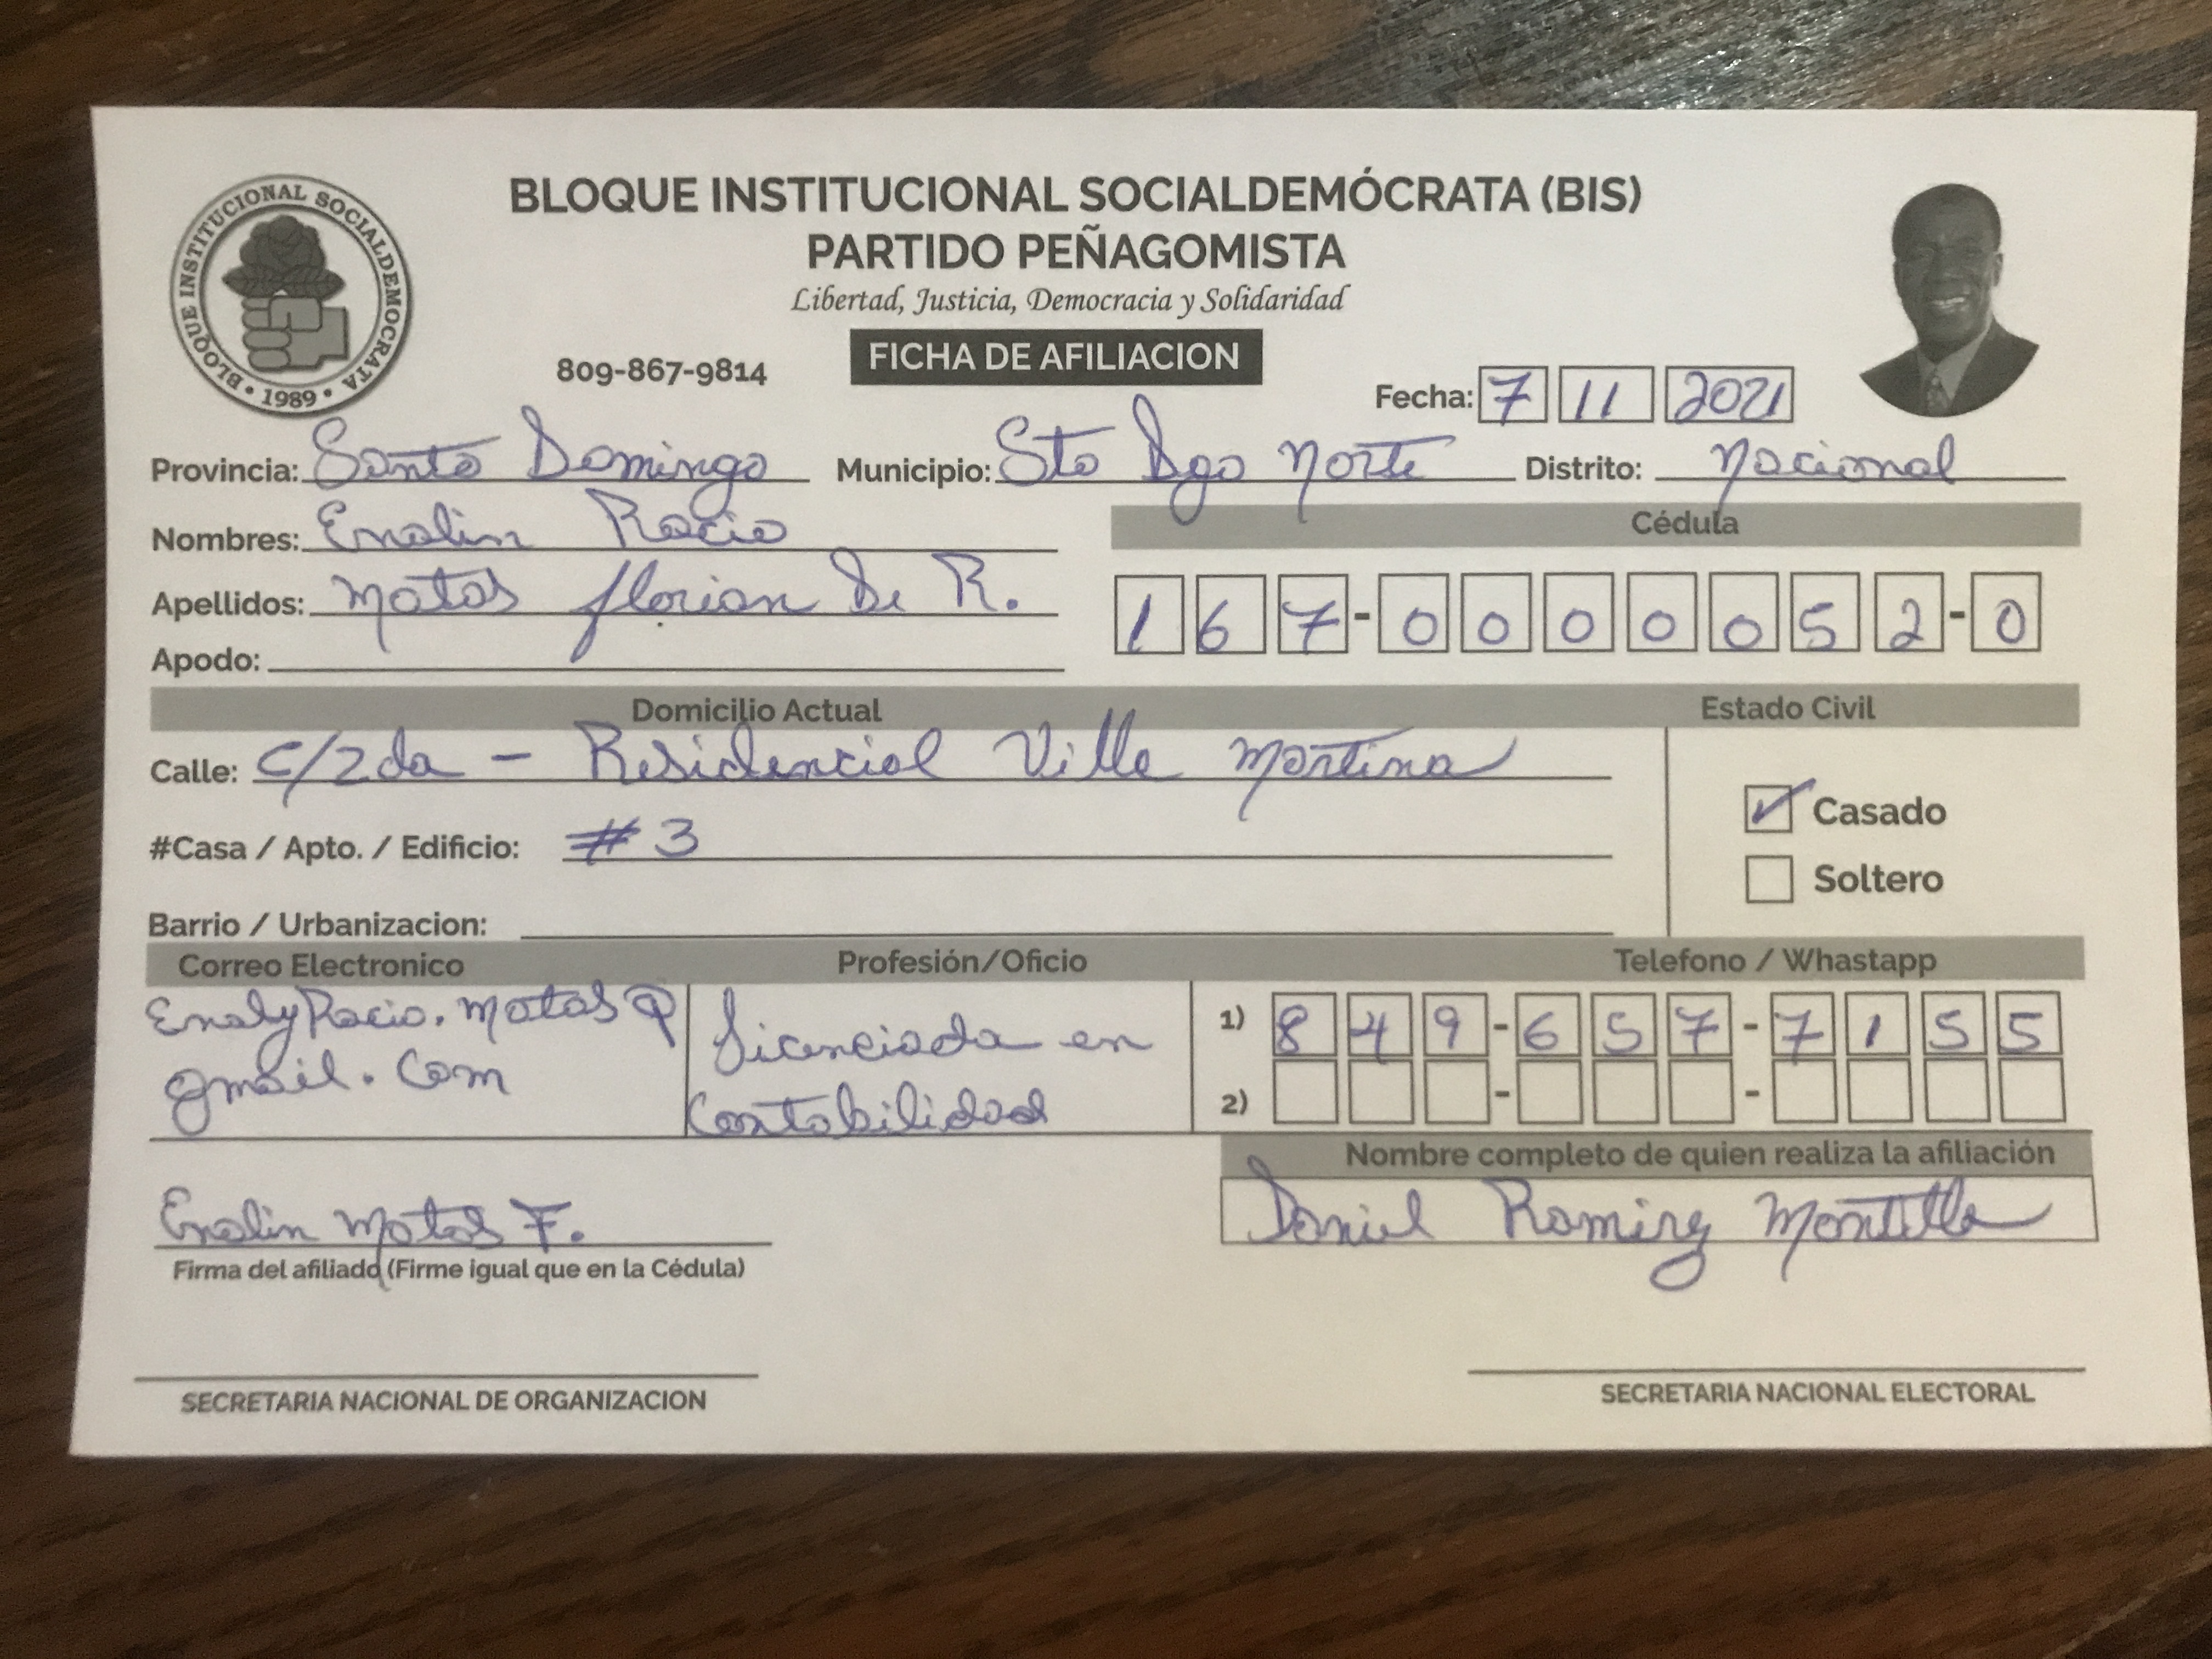 BLOQUE INSTITUCIONAL SOCIALDEMÓCRATA (BIS)
PARTIDO PEÑAGOMISTA
Libertad, Justicia, Democracia y Solidaridad
BLOQUE INSTITUCIONAL SOCIALDEMOCRATA • 1989 •
809-867-9814
FICHA DE AFILIACION
Fecha: 7 11 2021
Provincia: Santo Domingo Municipio: Sto Dgo Norte Distrito: Nacional
Nombres: Enalin Rocio
Cédula
Apellidos: Matos florian De R.
167-0000052-0
Apodo:
Domicilio Actual Estado Civil
Calle: C/2da - Residencial Villa Martina
Casado
#Casa / Apto. / Edificio: #3
Soltero
Barrio / Urbanizacion:
Correo Electronico Profesión/Oficio Telefono / Whastapp
EnalyRocio.matos@
gmail.com
Licenciada en
Contabilidad
1) 849-657-7155
2) - -
Nombre completo de quien realiza la afiliación
Daniel Ramirez Montilla
Enalin Matos F.
Firma del afiliado (Firme igual que en la Cédula)
SECRETARIA NACIONAL DE ORGANIZACION
SECRETARIA NACIONAL ELECTORAL